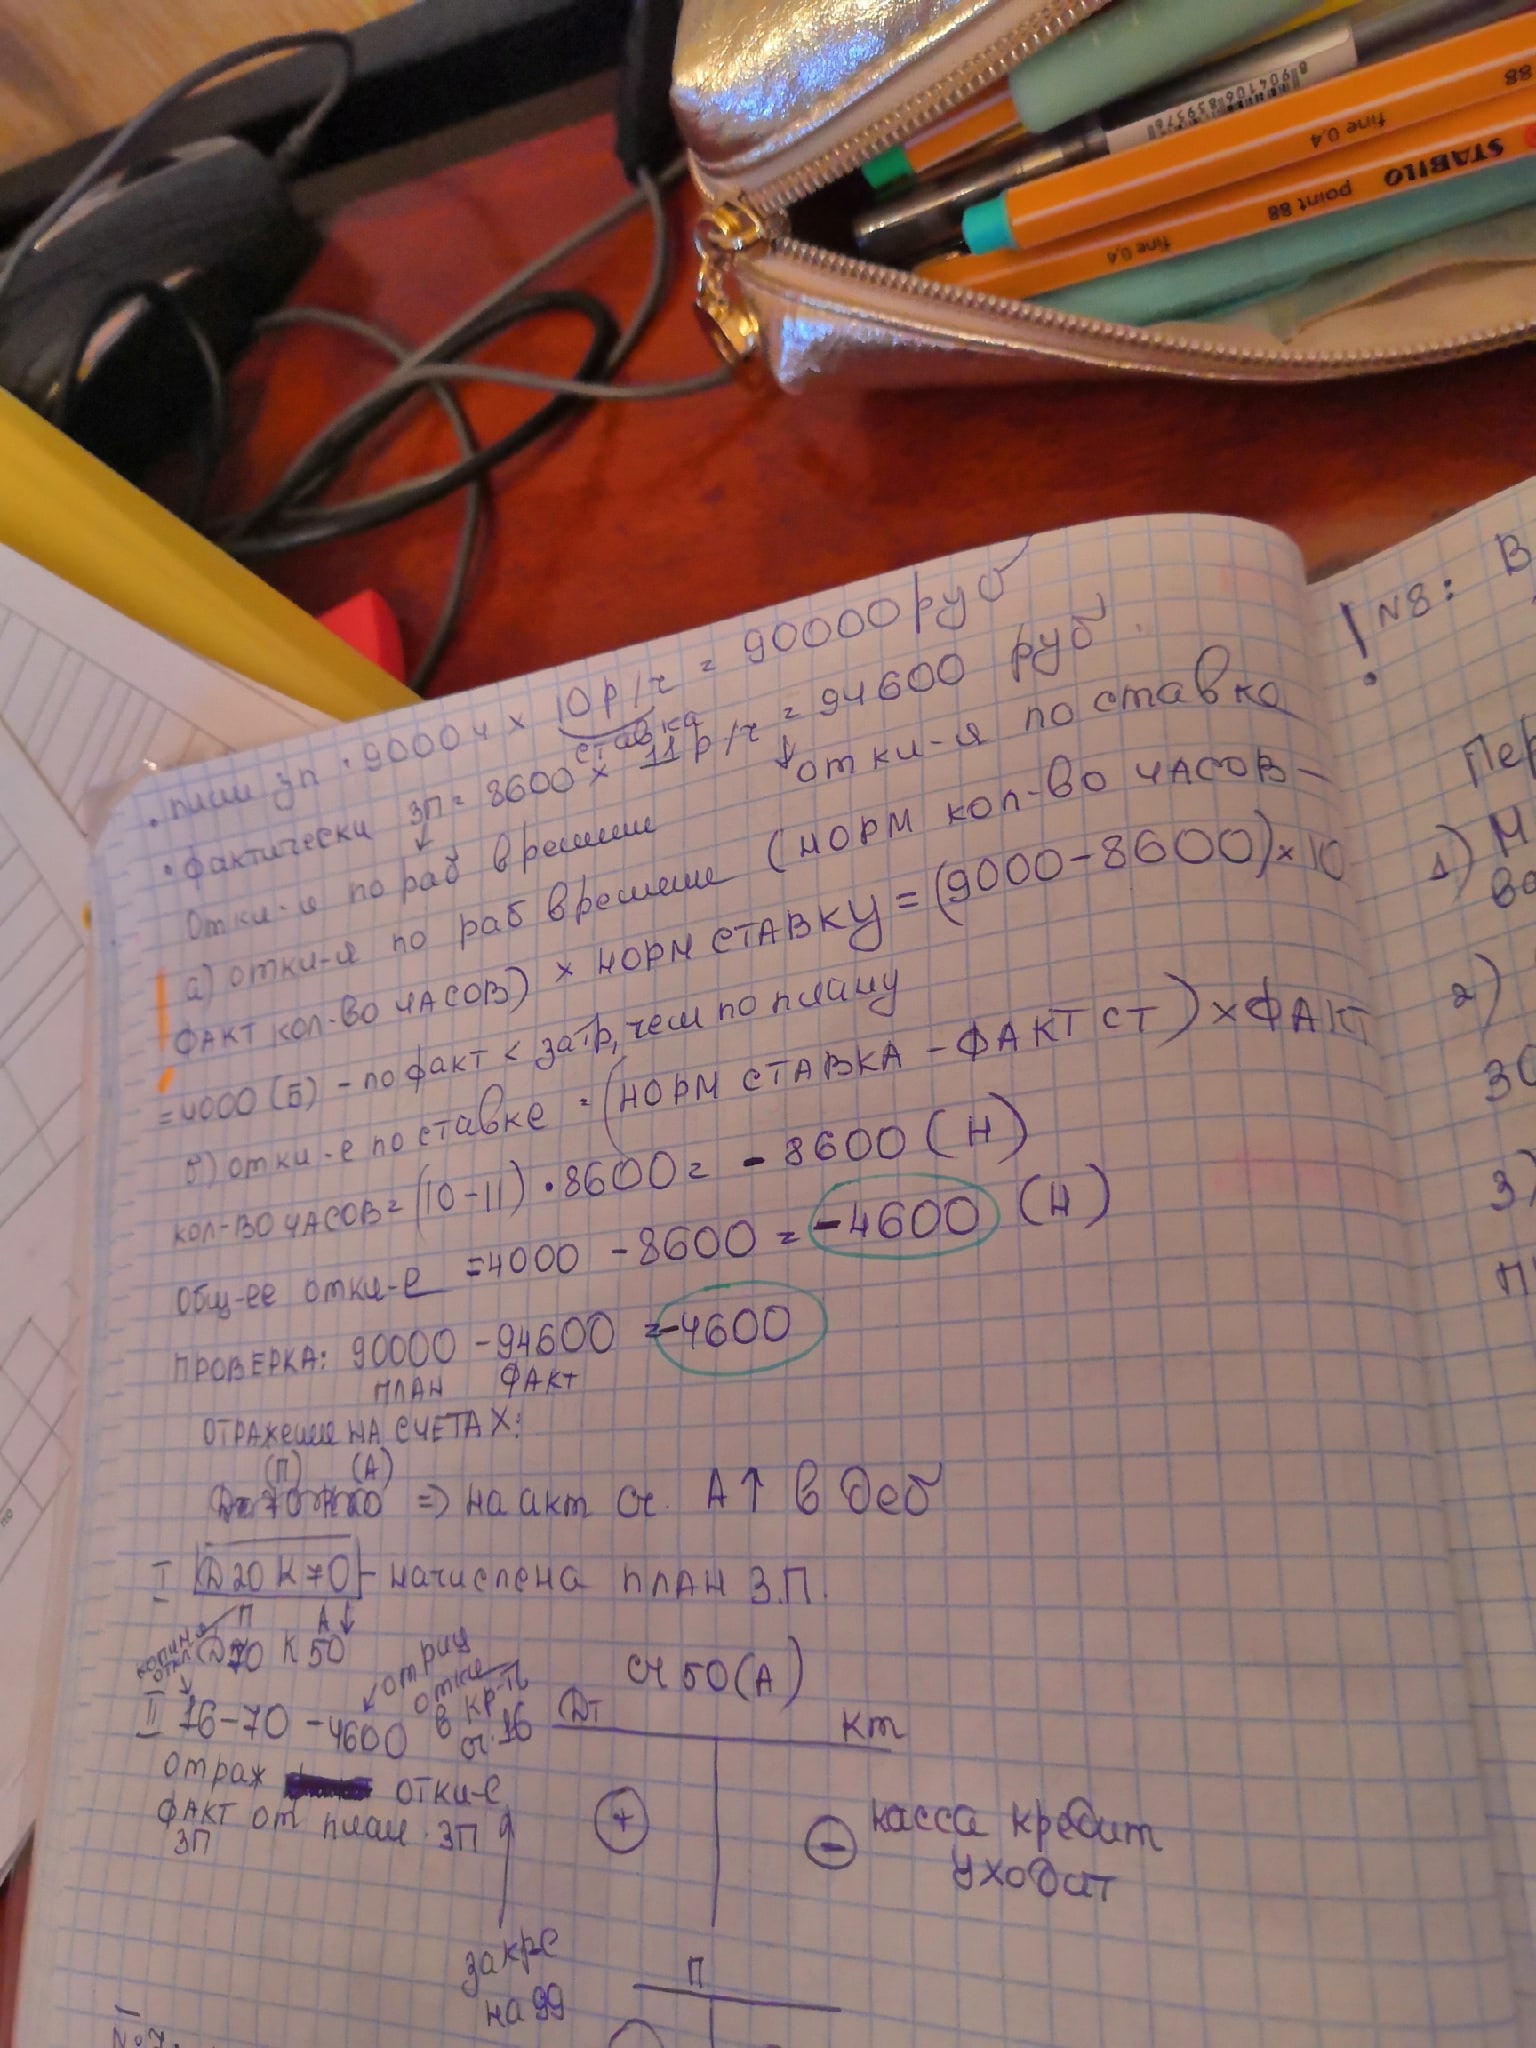 8904106839376
88
fine 0.4
STABILO
point 88
fine 0.4
• план зп • 9000 ч × 10 р/ч = 90000 руб
ставка
• фактически зп = 8600 × 11 р/ч = 94600 руб.
откл-я по раб времени
откл-я по ставке
а) откл-я по раб времени (НОРМ КОЛ-ВО ЧАСОВ –
ФАКТ КОЛ-ВО ЧАСОВ) × НОРМ СТАВКУ = (9000 – 8600) × 10
= 4000 (Б) – по факт < затр, чем по плану
б) откл-е по ставке = (НОРМ СТАВКА – ФАКТ СТ) × ФАКТ
КОЛ-ВО ЧАСОВ = (10 – 11) • 8600 = - 8600 (Н)
Общ-ее откл-е = 4000 – 8600 = -4600 (Н)
ПРОВЕРКА: 90000 – 94600 = -4600
ПЛАН ФАКТ
ОТРАЖение НА СЧЕТАХ:
(П) (А)
Дт 70 Кт 20 => на акт сч. А↑ в деб
I Д20 К70 – начислена ПЛАН З.П.
П А
Д70 К 50
откл
отриц откл
в кр-т
сч. 16
II 16 – 70 – 4600
отраж откл-е
ФАКТ от план ЗП
ЗП
закре
на 99
сч 50 (А)
Дт Кт
+
– касса кредит
уходит
П
№7.
! N8: В
Пер
1) Н
2)
3)